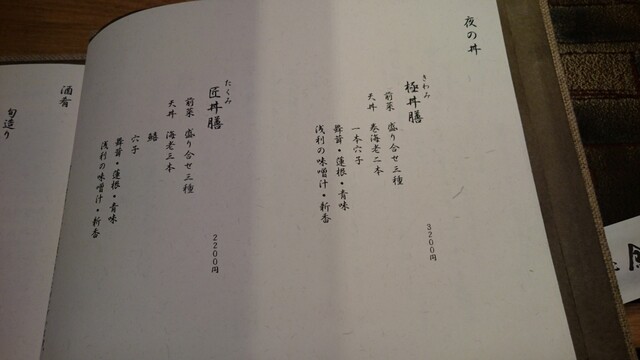 夜の丼
きわみ
極丼膳
前菜 盛り合せ三種
天丼 巻海老二本
一本穴子
舞茸・蓮根・青味
浅利の味噌汁・新香
3200円
たくみ
匠丼膳
前菜 盛り合せ三種
天丼 海老三本
鱚
穴子
舞茸・蓮根・青味
浅利の味噌汁・新香
2200円
酒肴
旬造り